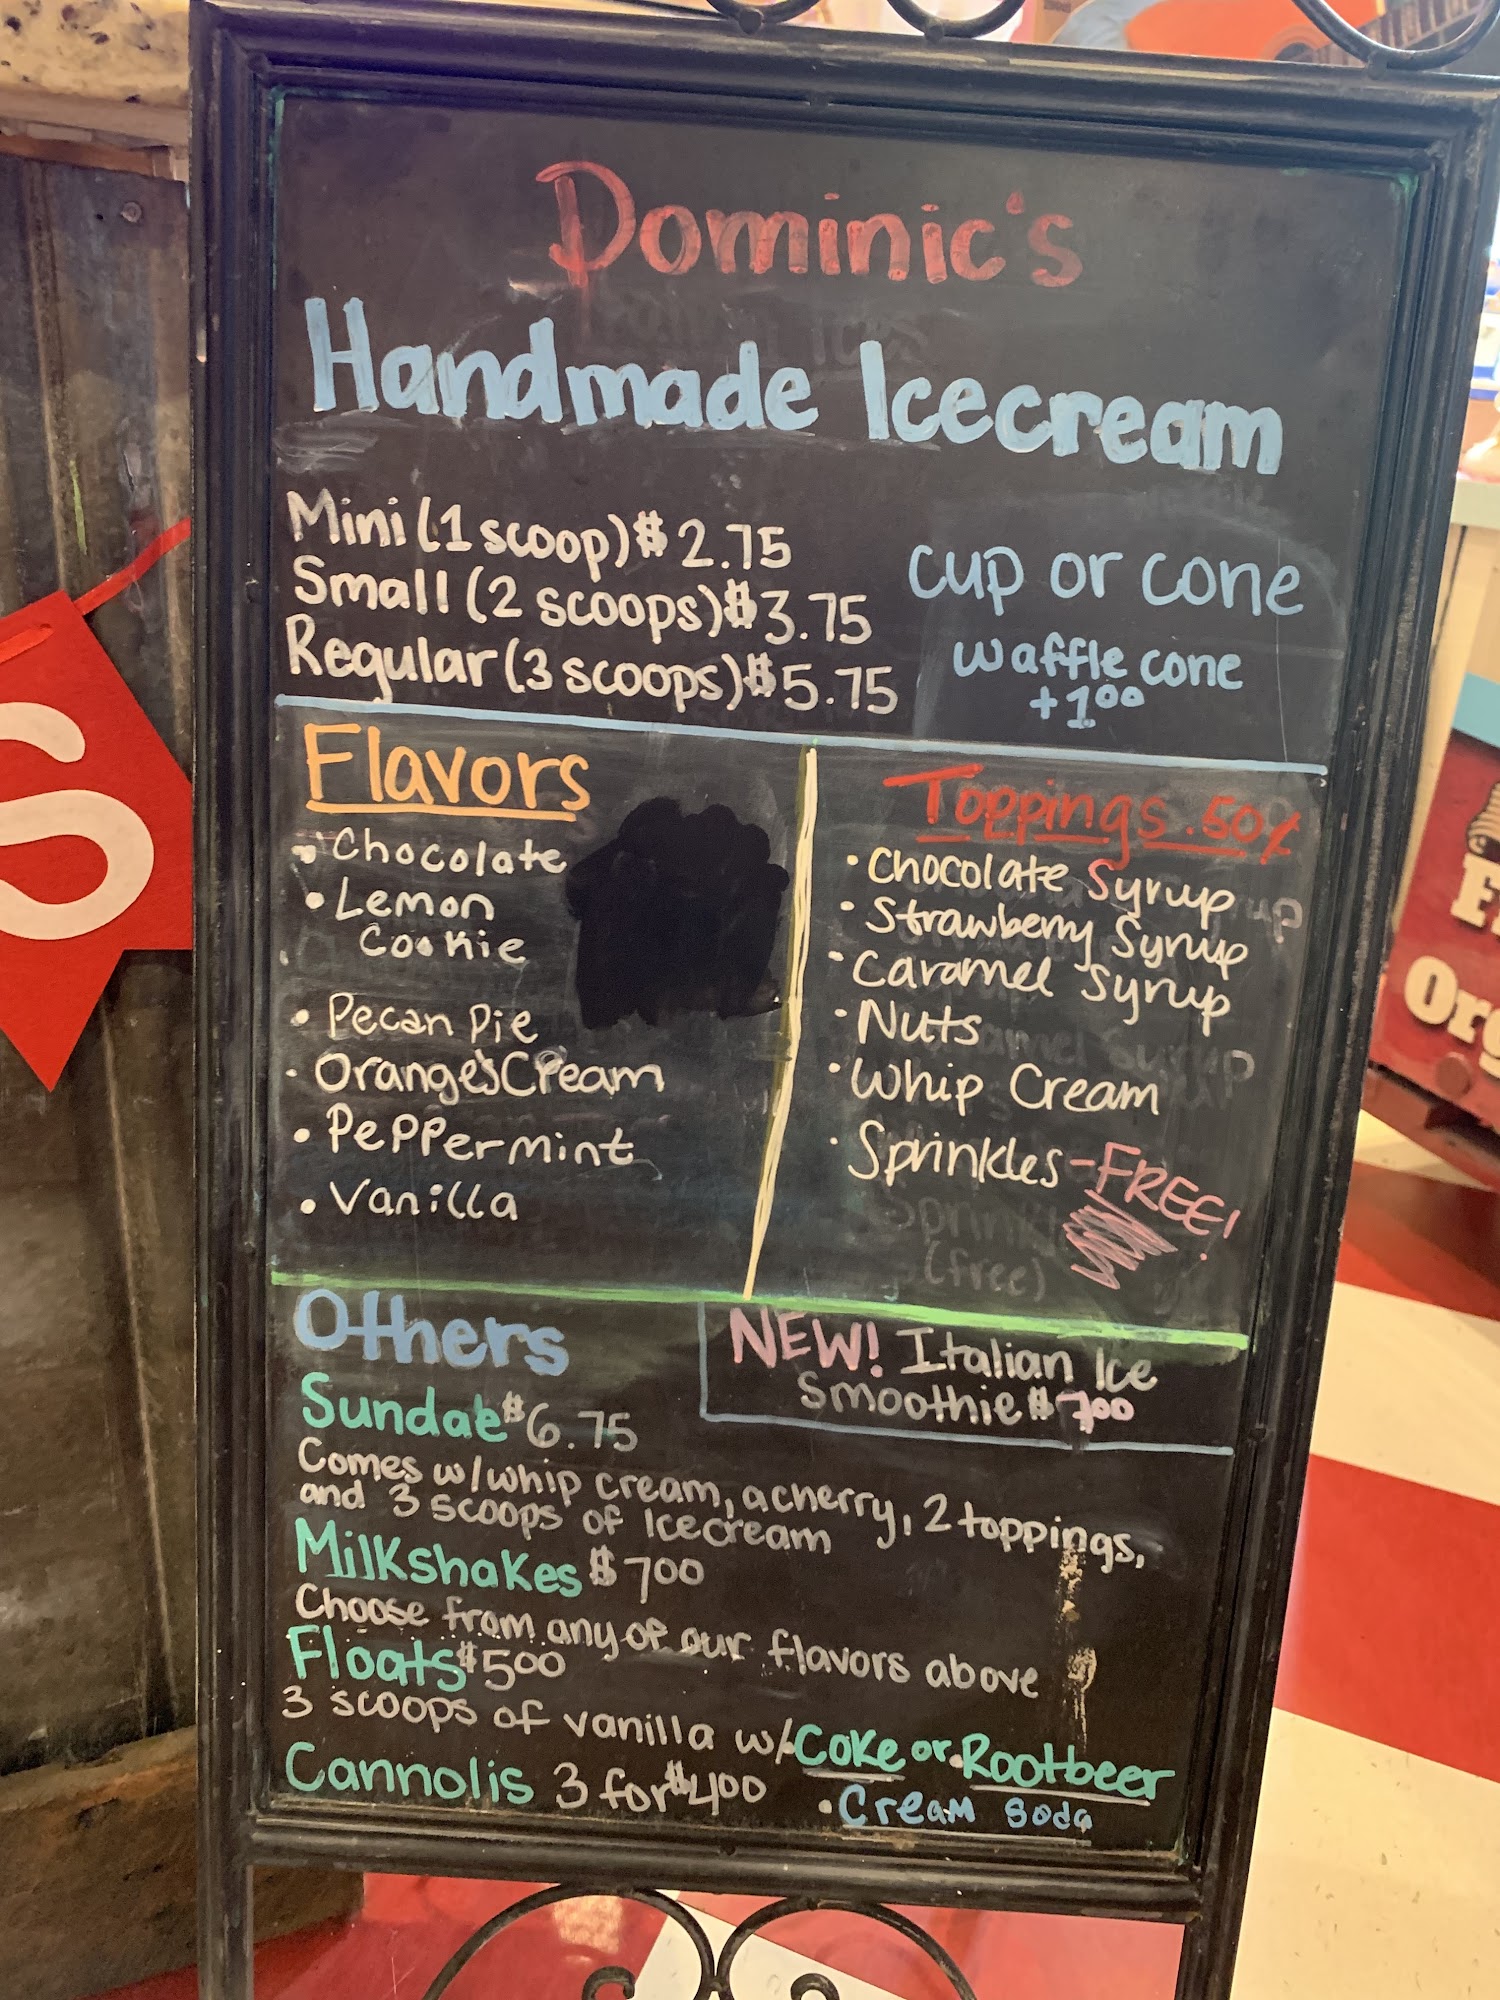 Dominic's
Handmade Icecream
Mini (1 scoop) $2.75
Small (2 scoops) $3.75
Regular (3 scoops) $5.75
cup or cone
waffle cone
+1.00
Flavors
• Chocolate
• Lemon
Cookie
• Pecan Pie
• Orange'sCream
• Peppermint
• Vanilla
Toppings .50¢
• Chocolate Syrup
• Strawberry Syrup
• Caramel Syrup
• Nuts
• Whip Cream
• Sprinkles - FREE!
(free)
Others
NEW! Italian Ice
Smoothie $7.00
Sundae $6.75
Comes w/whip cream, a cherry, 2 toppings,
and 3 scoops of Icecream
Milkshakes $7.00
Choose from any of our flavors above
Floats $5.00
3 scoops of vanilla w/Coke or Rootbeer
• Cream Soda
Cannolis 3 for $4.00
S
Org